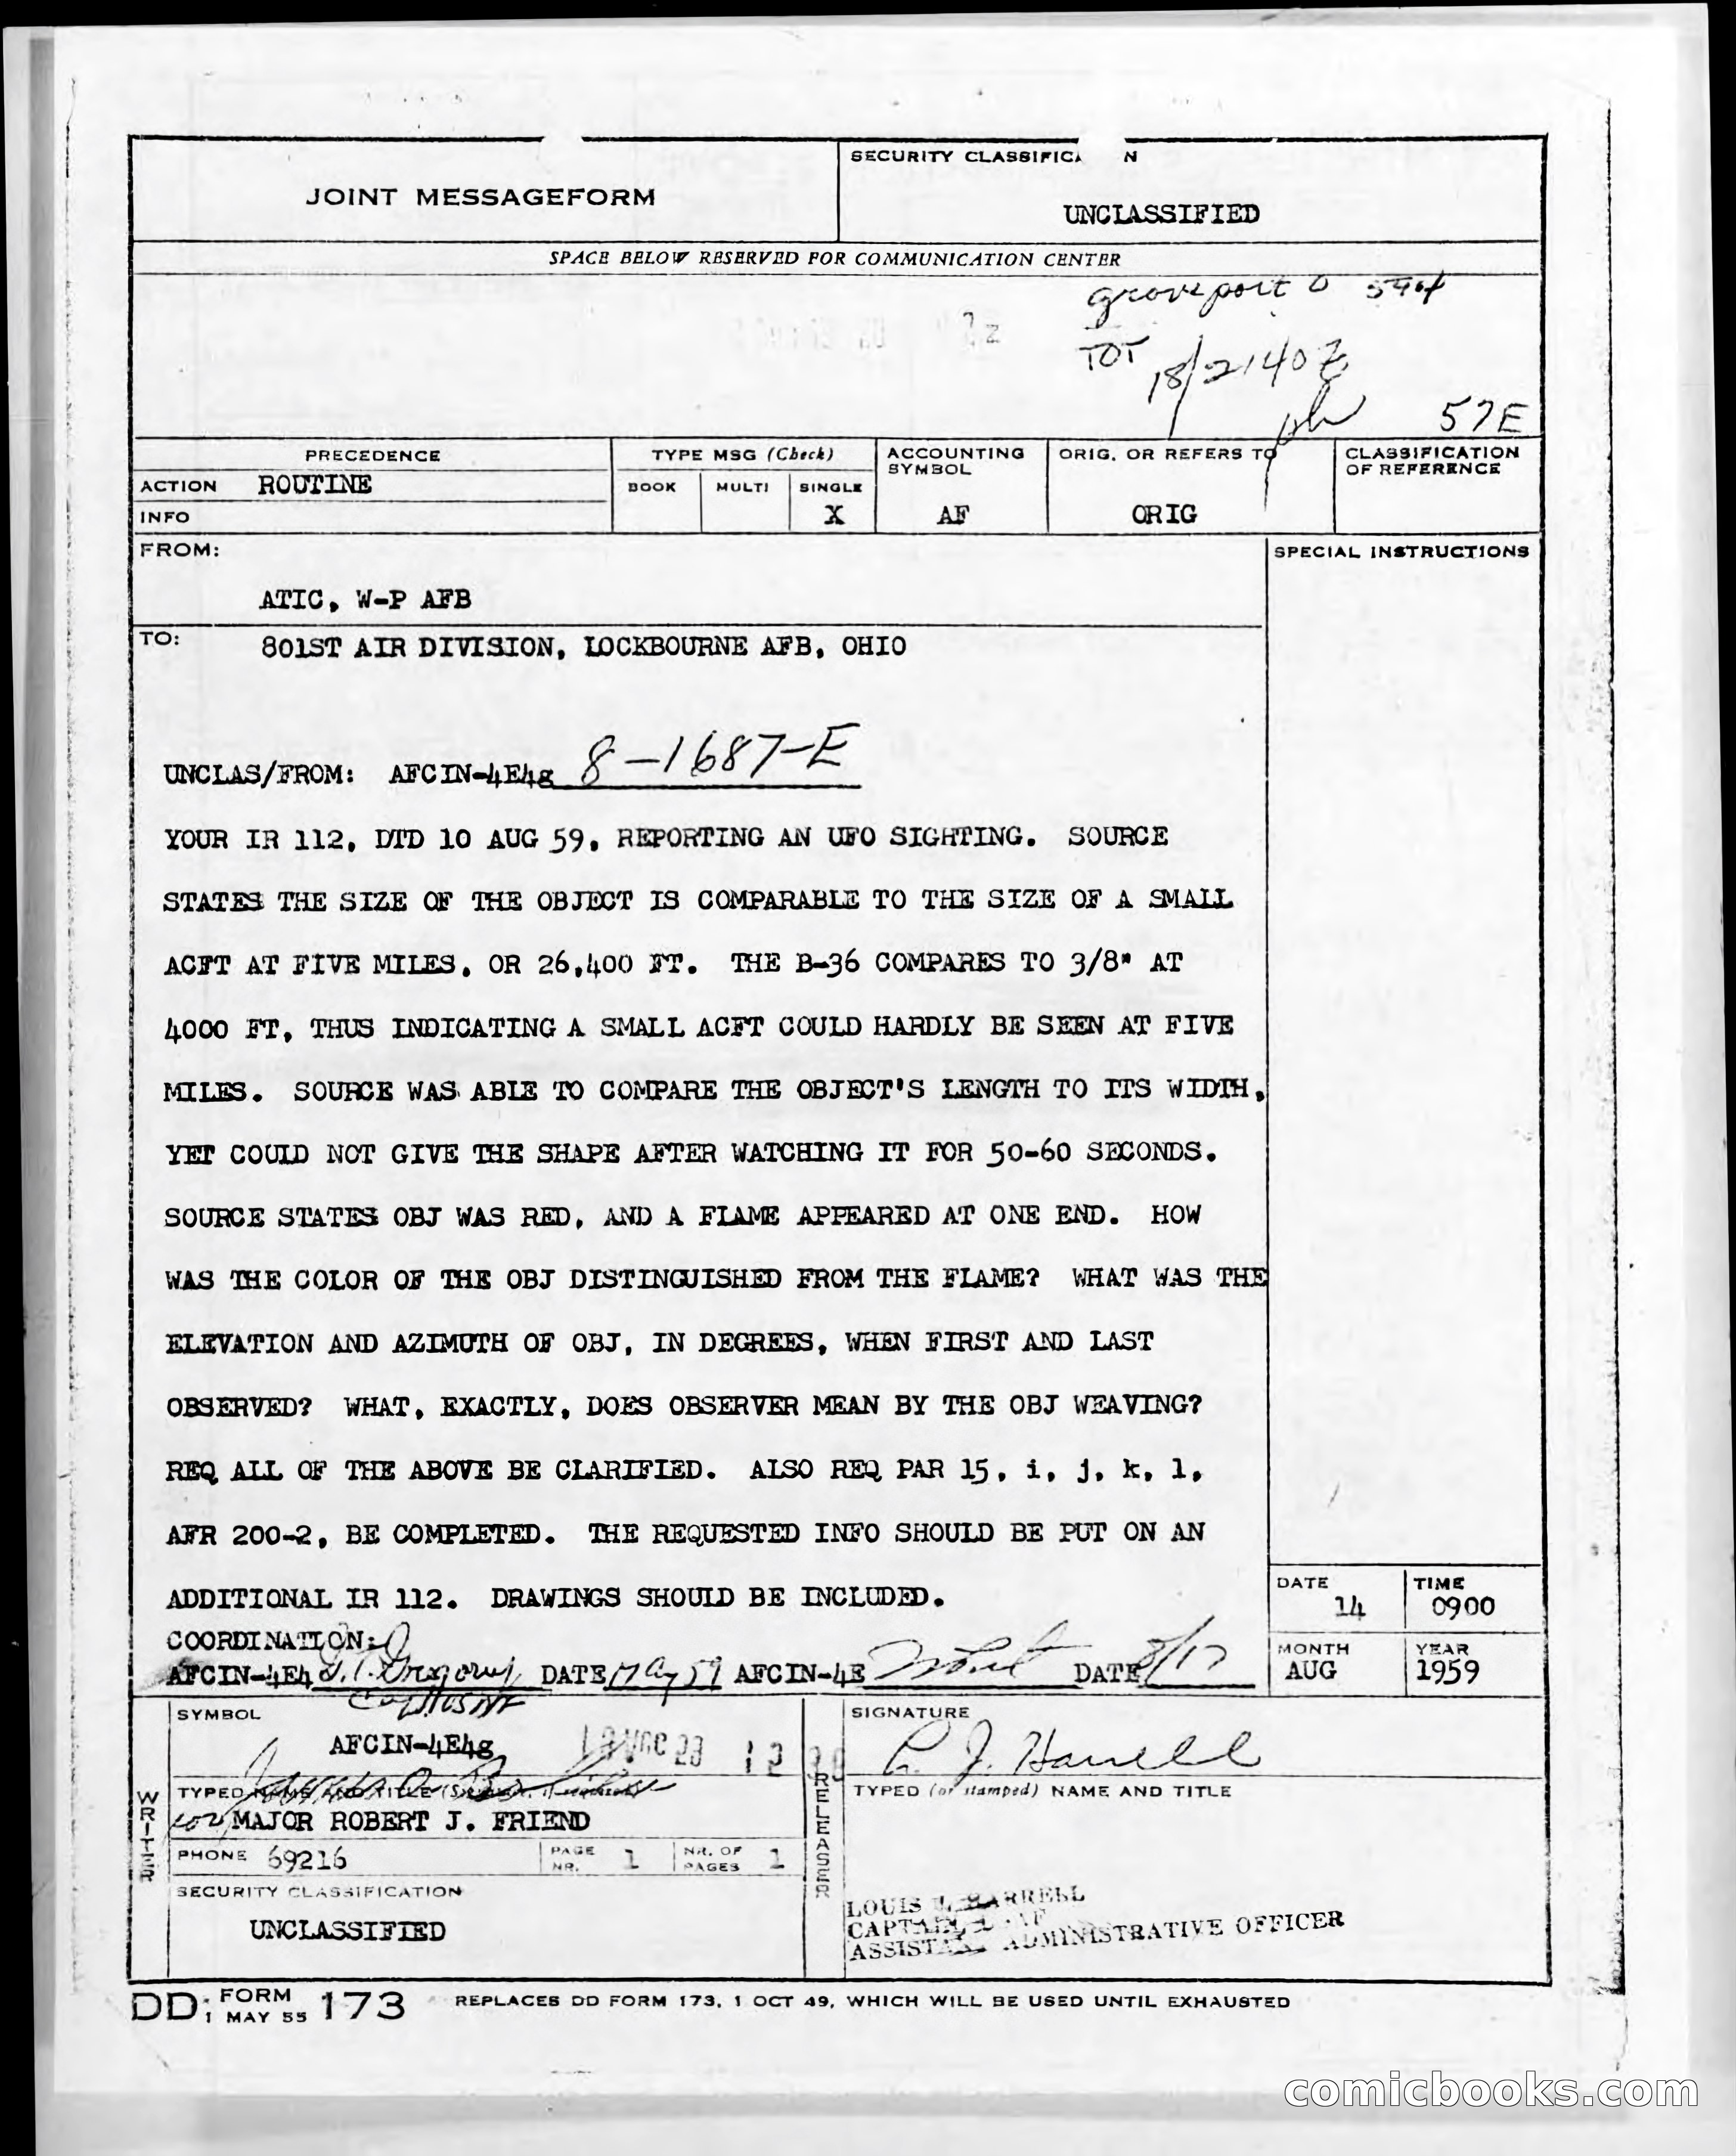 SECURITY CLASSIFICA N
JOINT MESSAGEFORM
UNCLASSIFIED
SPACE BELOW RESERVED FOR COMMUNICATION CENTER
Groveport O
TOT 18/2140Z
57E
PRECEDENCE
TYPE MSG (Check)
ACCOUNTING SYMBOL
ORIG. OR REFERS TO
CLASSIFICATION OF REFERENCE
ACTION ROUTINE
BOOK MULTI SINGLE
INFO
X AF ORIG
FROM:
SPECIAL INSTRUCTIONS
ATIC, W-P AFB
TO: 801ST AIR DIVISION, LOCKBOURNE AFB, OHIO
UNCLAS/FROM: AFCIN-4E4g 8-1687-E
YOUR IR 112, DTD 10 AUG 59, REPORTING AN UFO SIGHTING. SOURCE
STATES THE SIZE OF THE OBJECT IS COMPARABLE TO THE SIZE OF A SMALL
ACFT AT FIVE MILES, OR 26,400 FT. THE B-36 COMPARES TO 3/8" AT
4000 FT, THUS INDICATING A SMALL ACFT COULD HARDLY BE SEEN AT FIVE
MILES. SOURCE WAS ABLE TO COMPARE THE OBJECT'S LENGTH TO ITS WIDTH,
YET COULD NOT GIVE THE SHAPE AFTER WATCHING IT FOR 50-60 SECONDS.
SOURCE STATES OBJ WAS RED, AND A FLAME APPEARED AT ONE END. HOW
WAS THE COLOR OF THE OBJ DISTINGUISHED FROM THE FLAME? WHAT WAS THE
ELEVATION AND AZIMUTH OF OBJ, IN DEGREES, WHEN FIRST AND LAST
OBSERVED? WHAT, EXACTLY, DOES OBSERVER MEAN BY THE OBJ WEAVING?
REQ ALL OF THE ABOVE BE CLARIFIED. ALSO REQ PAR 15, i, j, k, l,
AFR 200-2, BE COMPLETED. THE REQUESTED INFO SHOULD BE PUT ON AN
ADDITIONAL IR 112. DRAWINGS SHOULD BE INCLUDED.
DATE 14
TIME 0900
COORDINATION:
AFCIN-4E4 DATE 17 Aug 59 AFCIN-4E DATE 8/17
MONTH AUG
YEAR 1959
SYMBOL
AFCIN-4E4g
SIGNATURE
L. J. Harrell
WRITER
TYPED NAME AND TITLE
for MAJOR ROBERT J. FRIEND
PHONE 69216
PAGE NR. 1
NR. OF PAGES 1
SECURITY CLASSIFICATION
UNCLASSIFIED
RELEASER
TYPED (or stamped) NAME AND TITLE
LOUIS J. HARRELL
CAPTAIN, USAF
ASSISTANT ADMINISTRATIVE OFFICER
DD FORM 1 MAY 55 173 REPLACES DD FORM 173, 1 OCT 49, WHICH WILL BE USED UNTIL EXHAUSTED
comicbooks.com